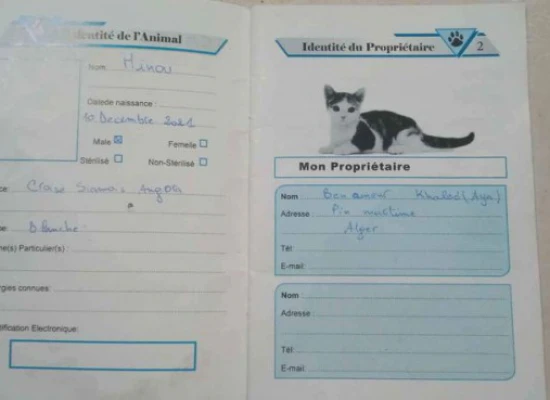 dentité de l'Animal
Nom Minou
Datede naissance :
10 Decembre 2021
Male
Femelle
Stérilisé
Non-Sterilisé
ce: Croisé Siamois Angora
be: Blanche
ne(s) Particulier(s) :
rgies connues:
tification Electronique:
Identité du Propriétaire
2
Mon Propriétaire
Nom : Ben Khaled (Aya)
Adresse : Pin maritime
Alger
Tél:
E-mail:
Nom
Adresse :
Tél:
E-mail: